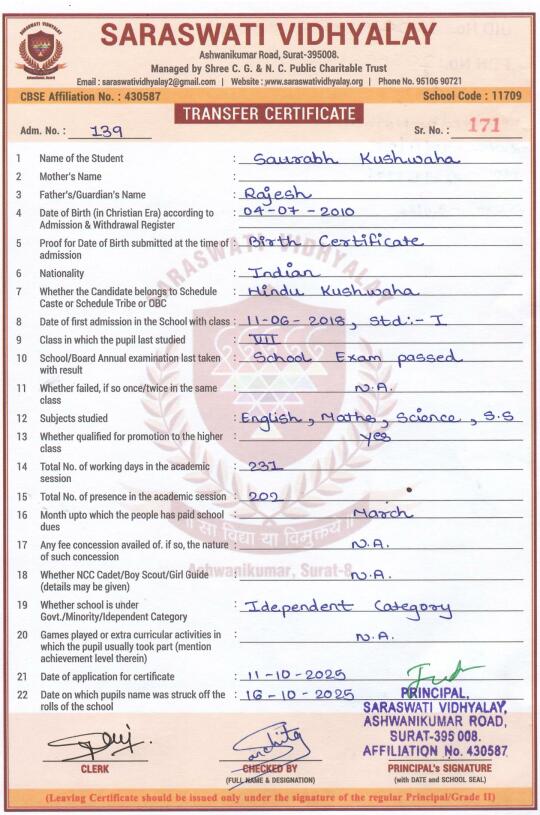 SARASWATI VIDHYALAY
Ashwanikumar Road, Surat-395008.
Managed by Shree C. G. & N. C. Public Charitable Trust
Email : saraswatividhyalay2@gmail.com | Website : www.saraswatividhyalay.org | Phone No. 95106 90721
CBSE Affiliation No. : 430587 School Code : 11709
TRANSFER CERTIFICATE
Adm. No. : 139 Sr. No. : 171
1 Name of the Student : Saurabh Kushwaha
2 Mother's Name :
3 Father's/Guardian's Name : Rajesh
4 Date of Birth (in Christian Era) according to : 04-07-2010
Admission & Withdrawal Register
5 Proof for Date of Birth submitted at the time of : Birth Certificate
admission
6 Nationality : Indian
7 Whether the Candidate belongs to Schedule : Hindu Kushwaha
Caste or Schedule Tribe or OBC
8 Date of first admission in the School with class : 11-06-2018, Std:- I
9 Class in which the pupil last studied : VII
10 School/Board Annual examination last taken : School Exam passed
with result
11 Whether failed, if so once/twice in the same : N.A.
class
12 Subjects studied : English, Maths, Science, S.S
13 Whether qualified for promotion to the higher : yes
class
14 Total No. of working days in the academic : 231
session
15 Total No. of presence in the academic session : 202
16 Month upto which the people has paid school : March
dues
17 Any fee concession availed of. if so, the nature : N.A.
of such concession
18 Whether NCC Cadet/Boy Scout/Girl Guide : N.A.
(details may be given)
19 Whether school is under : Idependent Category
Govt./Minority/Idependent Category
20 Games played or extra curricular activities in : N.A.
which the pupil usually took part (mention
achievement level therein)
21 Date of application for certificate : 11-10-2025
22 Date on which pupils name was struck off the : 16-10-2025
rolls of the school
PRINCIPAL,
SARASWATI VIDHYALAY,
ASHWANIKUMAR ROAD,
SURAT-395 008.
AFFILIATION No. 430587
CLERK CHECKED BY PRINCIPAL's SIGNATURE
(FULL NAME & DESIGNATION) (with DATE and SCHOOL SEAL)
(Leaving Certificate should be issued only under the signature of the regular Principal/Grade II)
SARASWATI VIDHYALAY
॥ सा विद्या या विमुक्तये ॥
Ashwanikumar, Surat-8